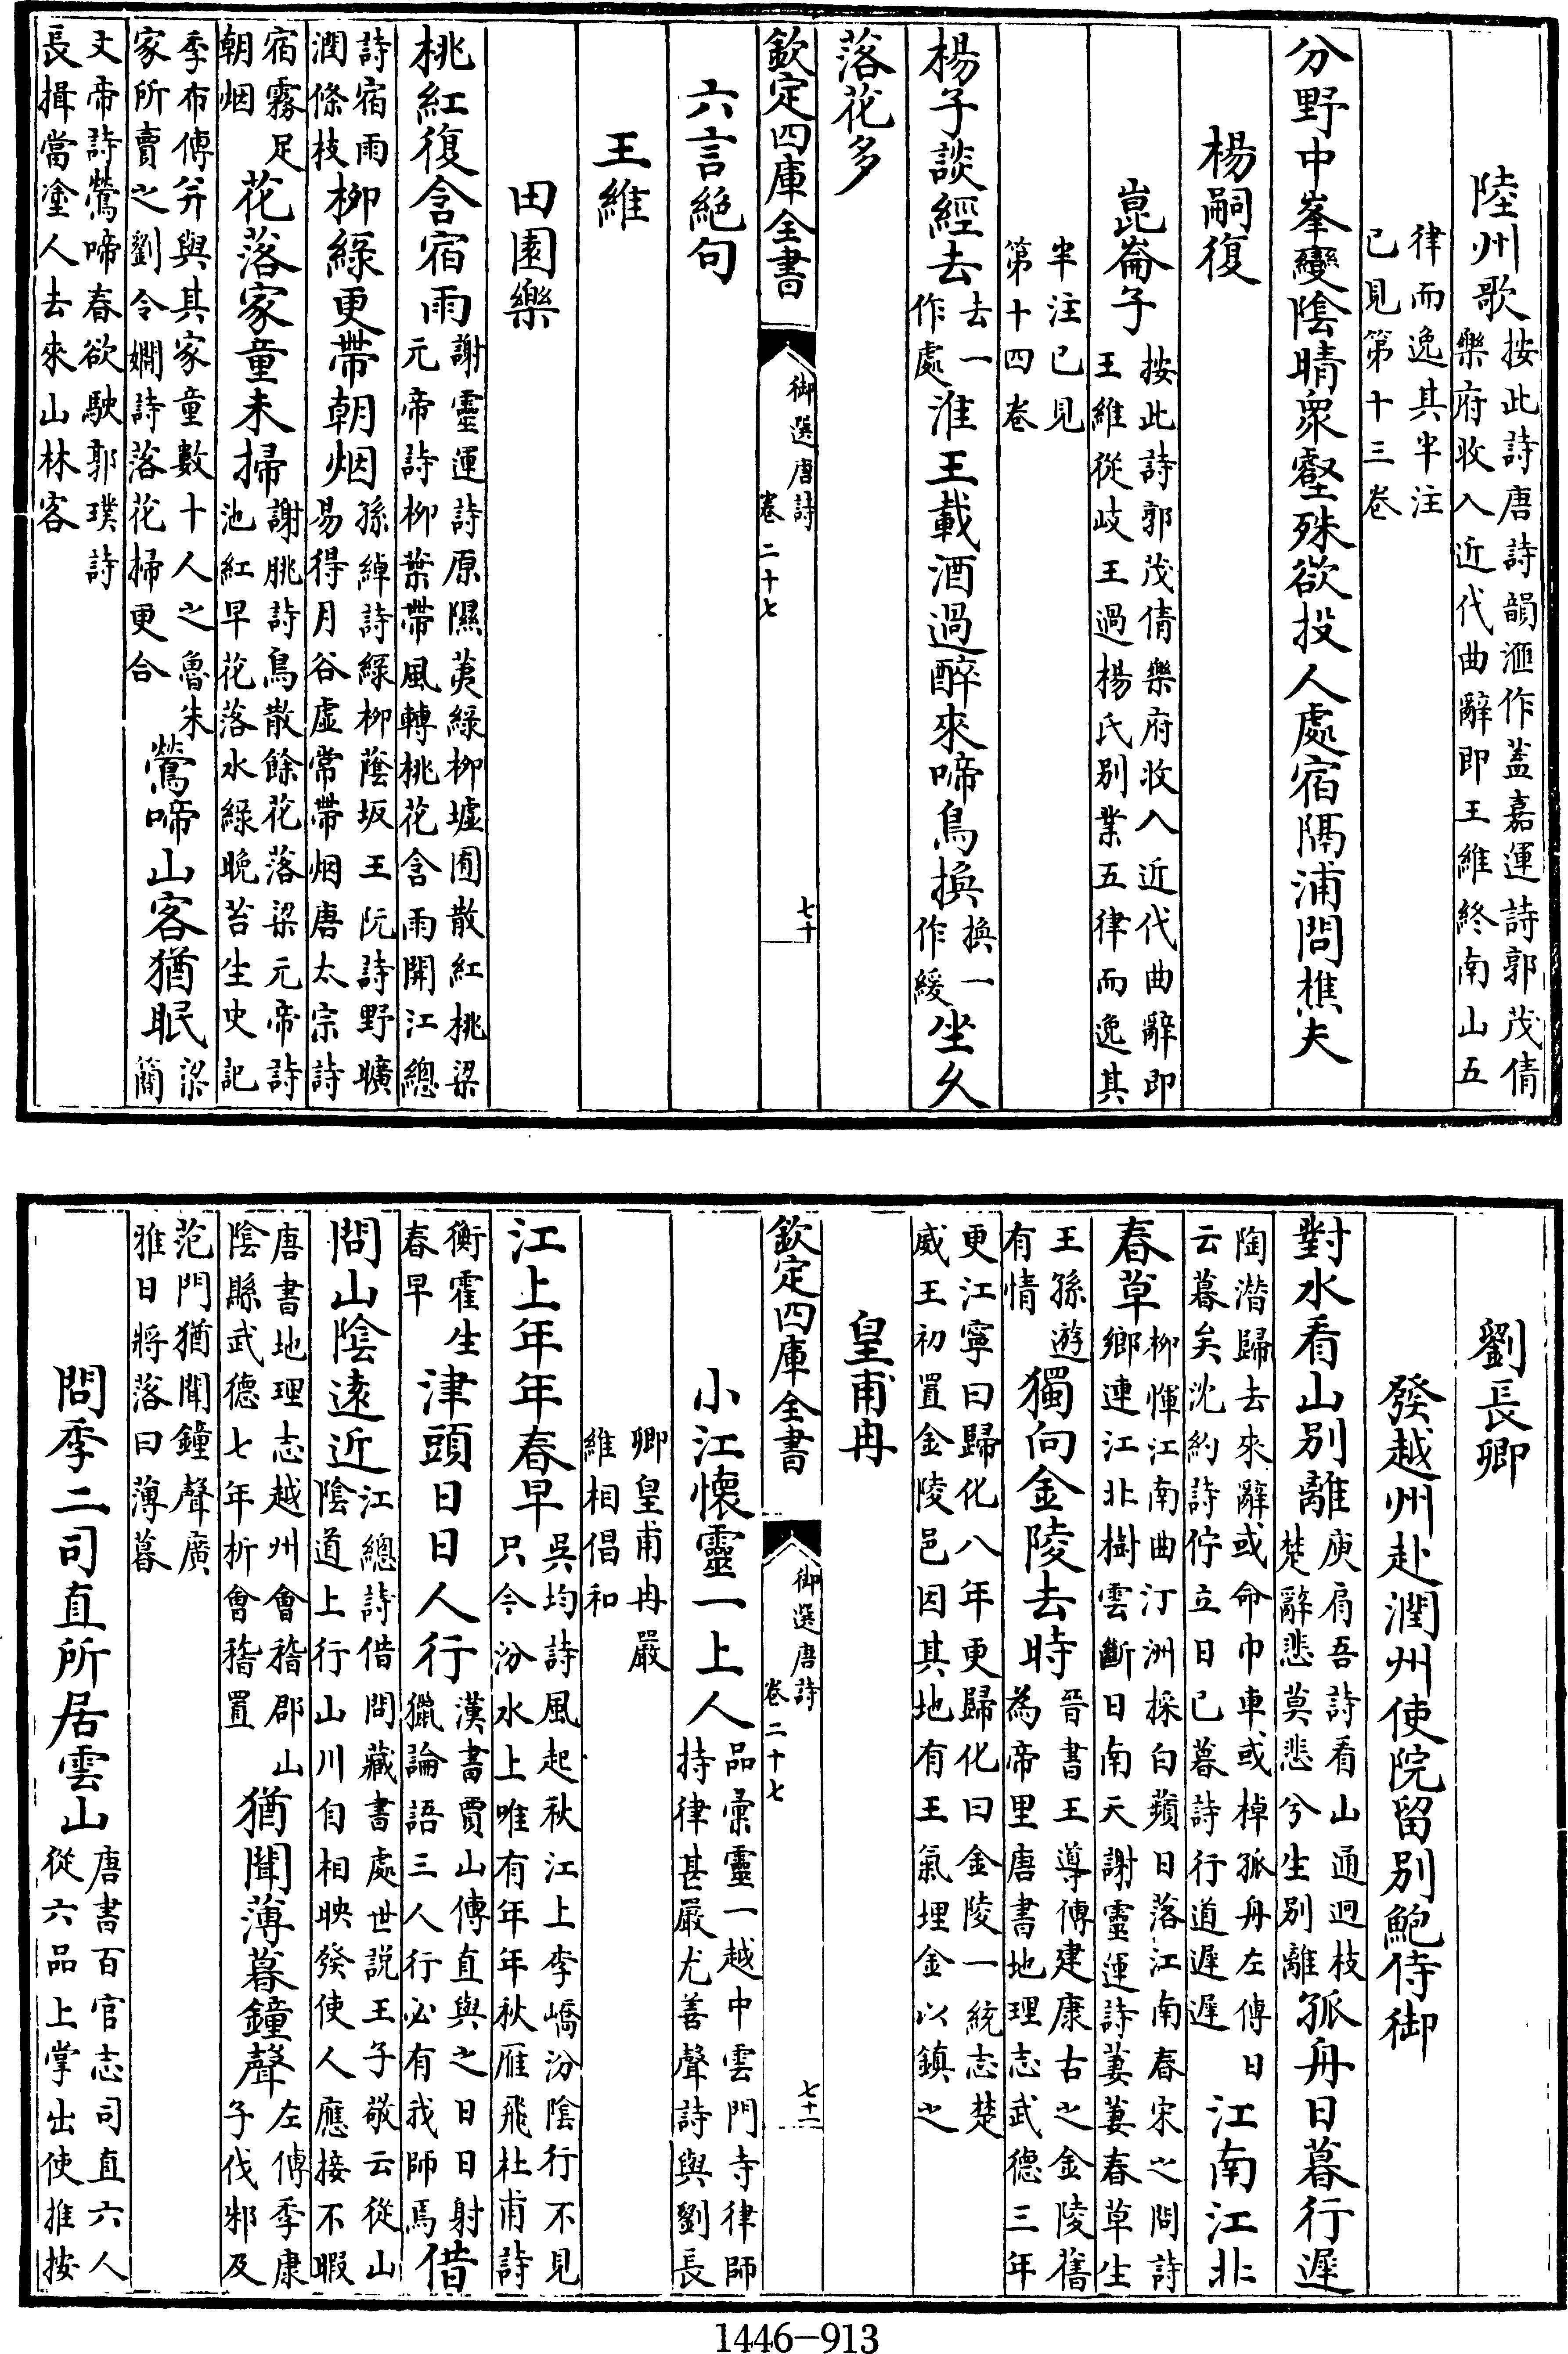 陸州歌按此詩唐詩韻滙作蓋嘉運詩郭茂倩樂府收入近代曲辭即王維終南山五
律而逸其半注已見第十三卷
分野中峯變陰晴衆壑殊欲投人處宿隔浦問樵夫
楊嗣復
崑崙子按此詩郭茂倩樂府收入近代曲辭即王維從岐王過楊氏别業五律而逸其
半注已見第十四卷
楊子談經去去一作處淮王載酒過醉來啼鳥換換一作緩坐久
落花多
欽定四庫全書 御選唐詩 卷二十七 七十
六言絕句
王維
田園樂
桃紅復含宿雨謝靈運詩原隰荑緑柳墟囿散紅桃梁元帝詩柳葉帶風轉桃花含雨開江總
詩宿雨潤條枝柳緑更帶朝烟孫綽詩緑柳蔭坂王阮詩野曠易得月谷虛常帶烟唐太宗詩
宿霧足朝烟花落家童未掃謝朓詩鳥散餘花落梁元帝詩池紅早花落水緑晚苔生史記
季布傳并與其家童數十人之魯朱家所賣之劉令嫺詩落花掃更合鶯啼山客猶眠梁簡
文帝詩鶯啼春欲駛郭璞詩長揖當塗人去來山林客
劉長卿
發越州赴潤州使院留别鮑侍御
對水看山别離庾肩吾詩看山通迥枝楚辭悲莫悲兮生别離孤舟日暮行遲
陶潛歸去來辭或命巾車或棹孤舟左傳日云暮矣沈約詩佇立日已暮詩行道遲遲江南江北
春草柳惲江南曲汀洲採白蘋日落江南春宋之問詩鄉連江北樹雲斷日南天謝靈運詩萋萋春草生
王孫遊有情獨向金陵去時晉書王導傳建康古之金陵舊為帝里唐書地理志武德三年
更江寧曰歸化八年更歸化曰金陵一統志楚威王初置金陵邑因其地有王氣埋金以鎮之
皇甫冉
欽定四庫全書 御選唐詩 卷二十七 七十一
小江懷靈一上人品彙靈一越中雲門寺律師持律甚嚴尤善聲詩與劉長
卿皇甫冉嚴維相倡和
江上年年春早吳均詩風起秋江上李嶠汾陰行不見只今汾水上唯有年年秋雁飛杜甫詩
衡霍生春早津頭日日人行漢書賈山傳直與之日日射獵論語三人行必有我師焉借
問山陰遠近江總詩借問藏書處世説王子敬云從山陰道上行山川自相映發使人應接不暇
唐書地理志越州會稽郡山陰縣武德七年析會稽置猶聞薄暮鐘聲左傳季康子伐邾及
范門猶聞鐘聲廣雅日將落曰薄暮
問李二司直所居雲山唐書百官志司直六人從六品上掌出使推按
1446-913